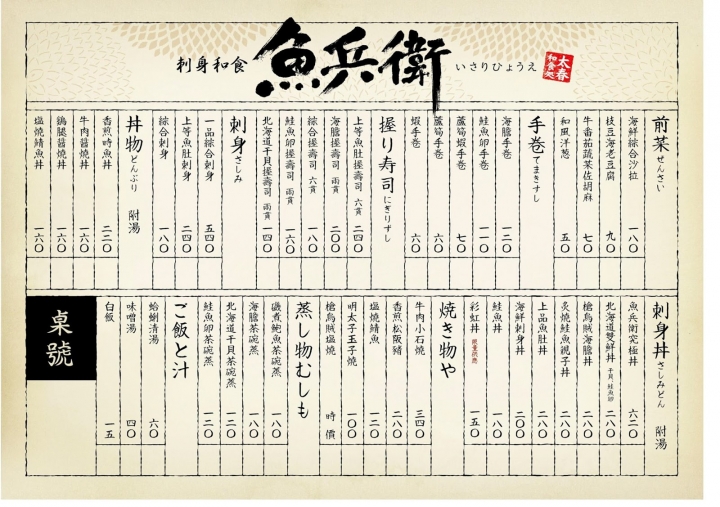 刺身和食
魚兵衛
いさりひょうえ
太春
和食処
前菜 ぜんさい
海鮮綜合沙拉 一八〇
枝豆海老豆腐 九〇
牛番茄蔬菜佐胡麻 七〇
和風洋葱 五〇
手巻 てまきすし
海膽手卷 一二〇
鮭魚卵手卷 一一〇
蘆筍蝦手卷 七〇
蘆筍手卷 六〇
蝦手卷 六〇
握り寿司 にぎりずし
上等魚肚握壽司 六貫 二四〇
海膽握壽司 兩貫 二〇〇
綜合握壽司 六貫 一八〇
鮭魚卵握壽司 兩貫 一六〇
北海道干貝握壽司 兩貫 一四〇
刺身 さしみ
一品綜合刺身 五四〇
上等魚肚刺身 二四〇
綜合刺身 一八〇
丼物 どんぶり 附湯
香煎時魚丼 二二〇
牛肉醬燒丼 一六〇
鷄腿醬燒丼 一六〇
塩燒鯖魚丼 一六〇
刺身丼 さしみどん 附湯
魚兵衛究極丼 六二〇
北海道雙鮮丼 干貝、鮭魚卵 二八〇
槍烏賊海膽丼 二八〇
炙燒鮭魚親子丼 二八〇
上品魚肚丼 二八〇
海鮮刺身丼 二〇〇
鮭魚丼 一八〇
彩虹丼 限量供應 一五〇
焼き物や
牛肉小石燒 三四〇
香煎松阪豬 二八〇
塩燒鯖魚 一二〇
明太子玉子燒 一〇〇
槍烏賊塩燒 時價
蒸し物むしも
磯煮鮑魚茶碗蒸 一八〇
海膽茶碗蒸 一八〇
北海道干貝茶碗蒸 一二〇
鮭魚卵茶碗蒸 一二〇
ご飯と汁
蛤蜊清湯 六〇
味噌湯 四〇
白飯 一五
桌號